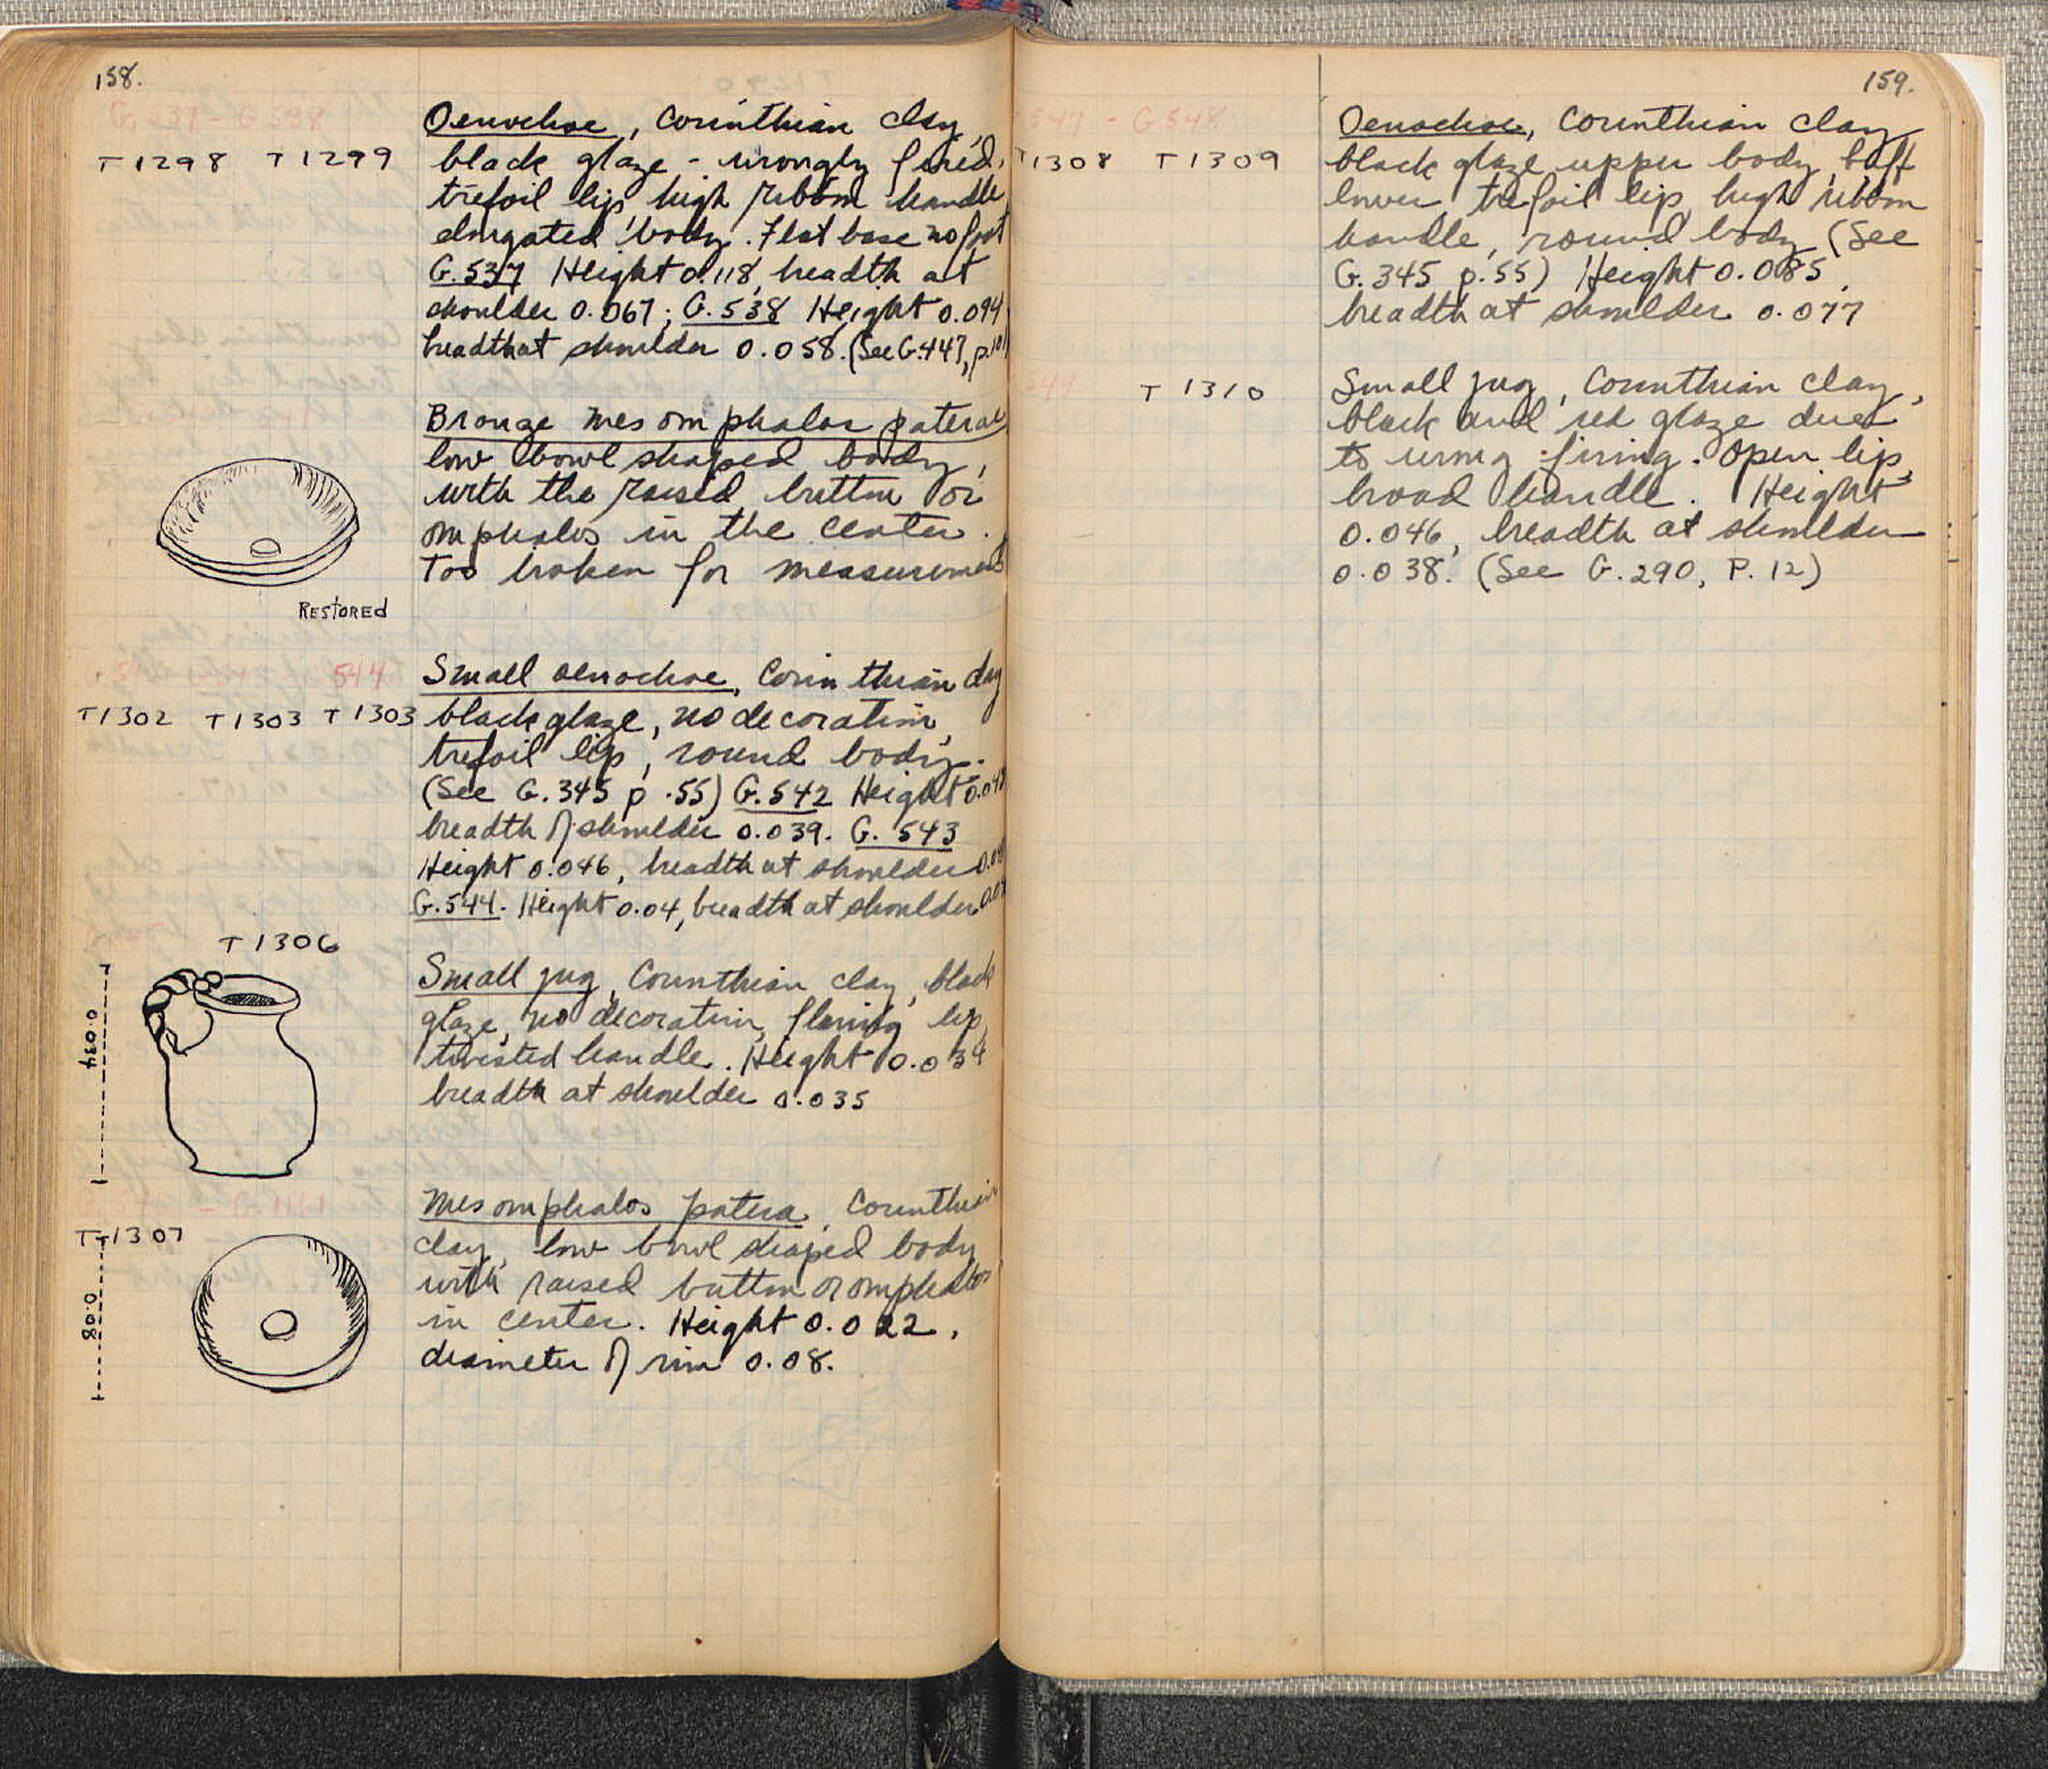 158.
G. 537 - G 538
T 1298 T 1299
Oenochoe, Corinthian clay,
black glaze - wrongly fired,
trefoil lip, high ribbon handle
elongated body. Flat base no foot
G.537 Height 0.118, breadth at
shoulder 0.067; G.538 Height 0.094
breadth at shoulder 0.058. (See G.447, p.101
Bronze mesomphalos paterae
low bowl shaped body,
with the raised button or
omphalos in the center.
Too broken for measurement
RESTORED
544
T1302 T1303 T1303
Small oenochoe, Corinthian clay
black glaze, no decoration,
trefoil lip, round body.
(See G. 345 p. 55) G.542 Height
breadth of shoulder 0.039. G. 543
Height 0.046, breadth at shoulder
G.544. Height 0.04, breadth at shoulder
T 1306
0.034
Small jug, Corinthian clay, black
glaze, no decoration, flaring lip,
twisted handle. Height 0.034
breadth at shoulder 0.035
- G.1161
T 1307
0.08
Mesomphalos patera, Corinthian
clay, low bowl shaped body
with raised button or omphalos
in center. Height 0.022,
diameter of rim 0.08.
159.
547 - G 548
T1308 T 1309
Oenochoe, Corinthian clay
black glaze upper body, buff
lower, trefoil lip, high ribbon
handle, round body (See
G.345 p.55) Height 0.085,
breadth at shoulder 0.077
T 1310
Small jug, Corinthian clay,
black and red glaze due
to wrong firing. Open lip,
broad handle. Height
0.046, breadth at shoulder
0.038. (See G.290, P.12)